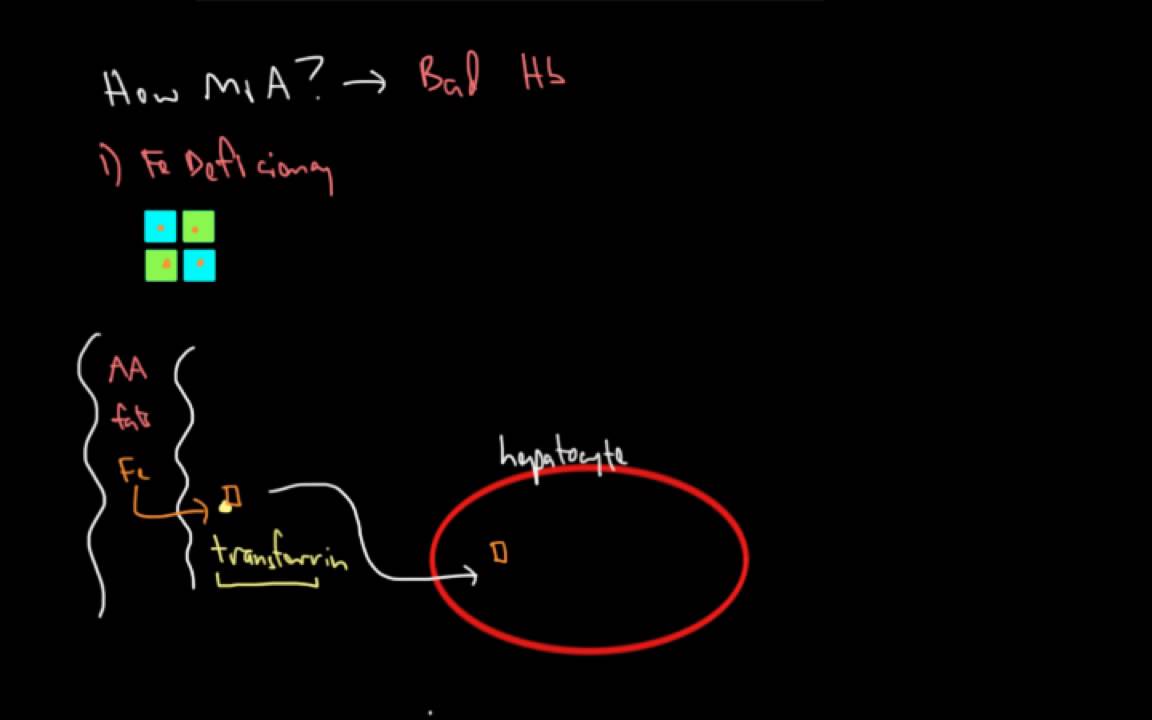 How MiA? → Bad Hb
1) Fe Deficiency
AA
fats
Fe
hepatocyte
transferrin